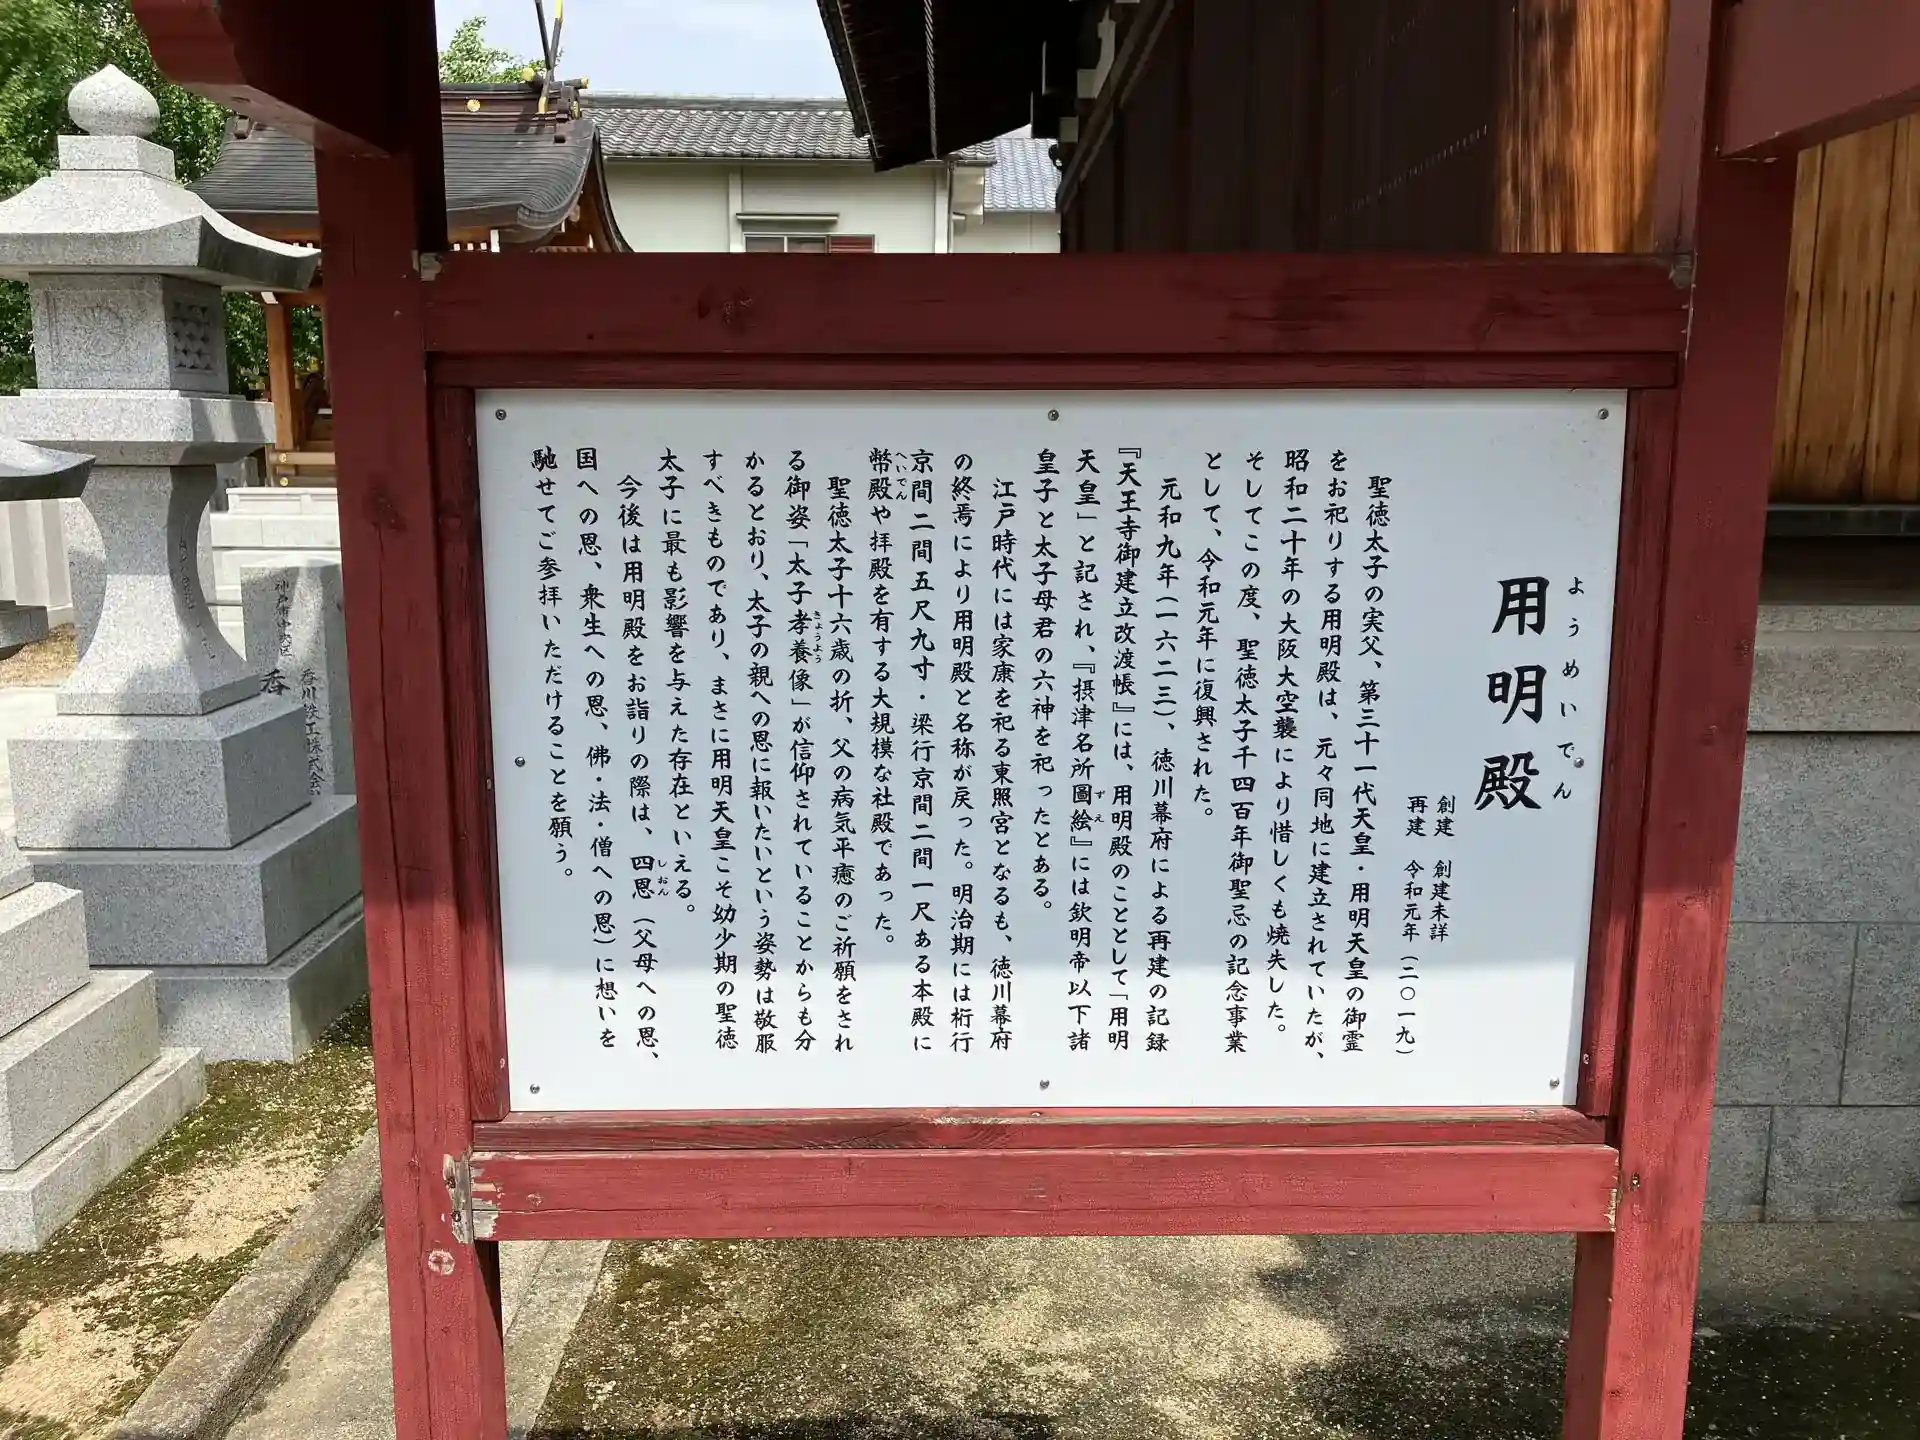 用明殿
ようめいでん
創建 創建未詳
再建 令和元年(二〇一九)
聖徳太子の実父、第三十一代天皇・用明天皇の御霊
をお祀りする用明殿は、元々同地に建立されていたが、
昭和二十年の大阪大空襲により惜しくも焼失した。
そしてこの度、聖徳太子千四百年御聖忌の記念事業
として、令和元年に復興された。
元和九年(一六二三)、徳川幕府による再建の記録
『天王寺御建立改渡帳』には、用明殿のこととして「用明
天皇」と記され、『摂津名所圖絵』には欽明帝以下諸
ずえ
皇子と太子母君の六神を祀ったとある。
江戸時代には家康を祀る東照宮となるも、徳川幕府
の終焉により用明殿と名称が戻った。明治期には桁行
京間二間五尺九寸・梁行京間二間一尺ある本殿に
幣殿や拝殿を有する大規模な社殿であった。
へいでん
聖徳太子十六歳の折、父の病気平癒のご祈願をされ
る御姿「太子孝養像」が信仰されていることからも分
きょうよう
かるとおり、太子の親への恩に報いたいという姿勢は敬服
すべきものであり、まさに用明天皇こそ幼少期の聖徳
太子に最も影響を与えた存在といえる。
今後は用明殿をお詣りの際は、四恩(父母への恩、
しおん
国への恩、衆生への恩、佛・法・僧への恩)に想いを
馳せてご参拝いただけることを願う。
神戸市中央区
香川鉄工株式会社
香